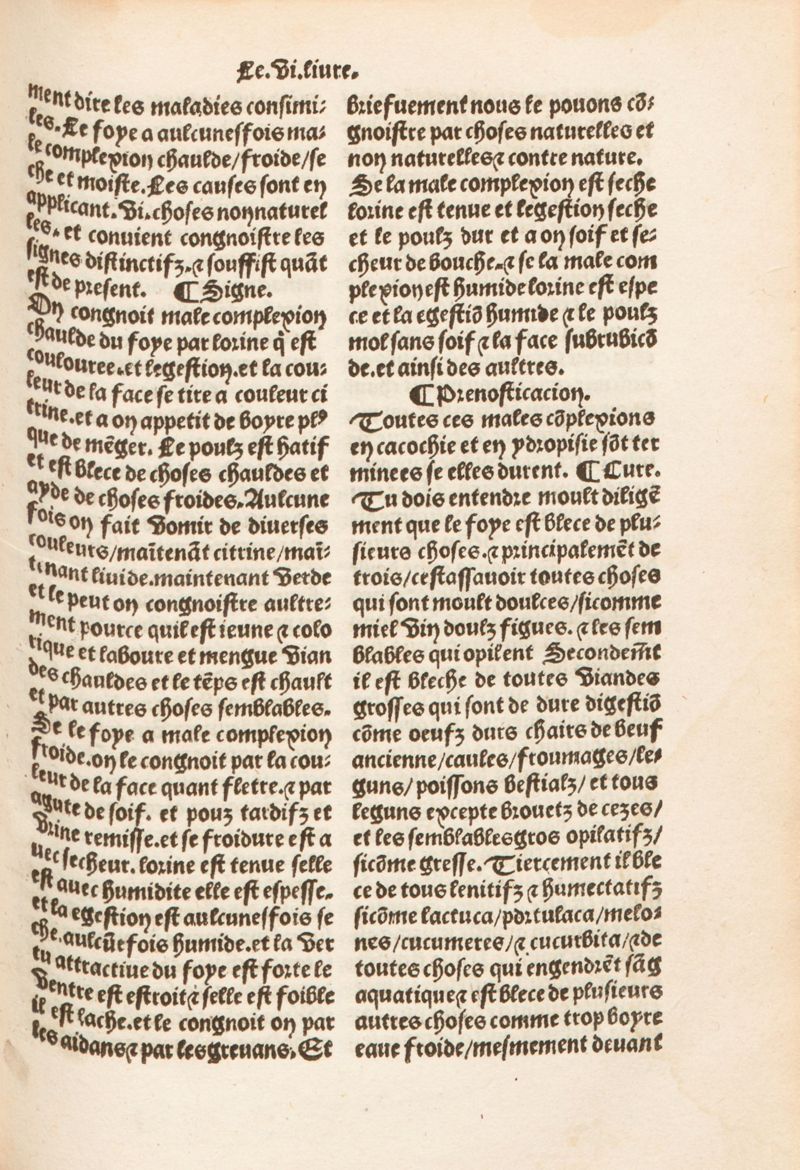 Le.Vi.liure.
ment dire les maladies consimi-
les. Le foye a aulcunesfois ma-
le complexion chaulde/froide/se
che et moiste.Les causes sont en
applicant.Vi.choses nonnaturel
les. et conuient congnoistre les
signes distinctifz.⁊ souffist quãt
est de present. ¶ Signe.
On congnoit male complexion
chaulde du foye par lorine q̃ est
coulouree.et legestion.et la cou-
leur de la face se tire a couleur ci
trine.et a on appetit de boyre plꝰ
que de mẽger. Le poulz est hatif
et est blece de choses chauldes et
ayde de choses froides.Aulcune
fois on fait vomir de diuerses
couleurs/maĩtenãt citrine/maĩ-
tenant liuide.maintenant verde
et le peut on congnoistre aultre-
ment pource quil est ieune ⁊ colo
rique et laboure et mengue vian
des chauldes et le tẽps est chault
et par autres choses semblables.
Se le foye a male complexion
froide.on le congnoit par la cou-
leur de la face quant fletre.⁊ par
agute de soif. et pouz tardifz et
vrine remisse.et se froidure est a
uec secheur. lorine est tenue selle
est auec humidite elle est espesse.
et la egestion est aulcunesfois se
che.aulcũefois humide.et la ver
tu attractiue du foye est forte le
ventre est estroit ⁊ selle est foible
il est lache.et le congnoit on par
les aidans ⁊ par les greuans. Et
briefuement nous le pouons cõ-
gnoistre par choses naturelles et
non naturelles ⁊ contre nature.
Se la male complexion est seche
lorine est tenue et legestion seche
et le poulz dur et a on soif et se-
cheur de bouche.⁊ se la male com
plexion est humide lorine est espe
ce et la egestiõ humide ⁊ le poulz
mol sans soif ⁊ la face subrubicõ
de.et ainsi des aultres.
¶ Prenosticacion.
Toutes ces males cõplexions
en cacochie et en ydropisie sõt ter
minees se elles durent. ¶ Cure.
Tu dois entendre moult diligẽ
ment que le foye est blece de plu-
sieurs choses.⁊ principalemẽt de
trois/cestassauoir toutes choses
qui sont moult doulces/sicomme
miel vin doulz figues. ⁊ les sem
blables qui opilent Secondem̃t
il est bleche de toutes viandes
grosses qui sont de dure digestiõ
cõme oeufz durs chairs de beuf
ancienne/caules/froumages/le-
guns/poissons bestialz/et tous
leguns excepte brouetz de cezes/
et les semblables gros opilatifz/
sicõme gresse. Tiercement il ble
ce de tous lenitifz ⁊ humectatifz
sicõme lactuca/portulaca/melo-
nes/cucumeres/⁊ cucurbita/⁊ de
toutes choses qui engendrẽt sãg
aquatique ⁊ est blece de plusieurs
autres choses comme trop boyre
eaue froide/mesmement deuant